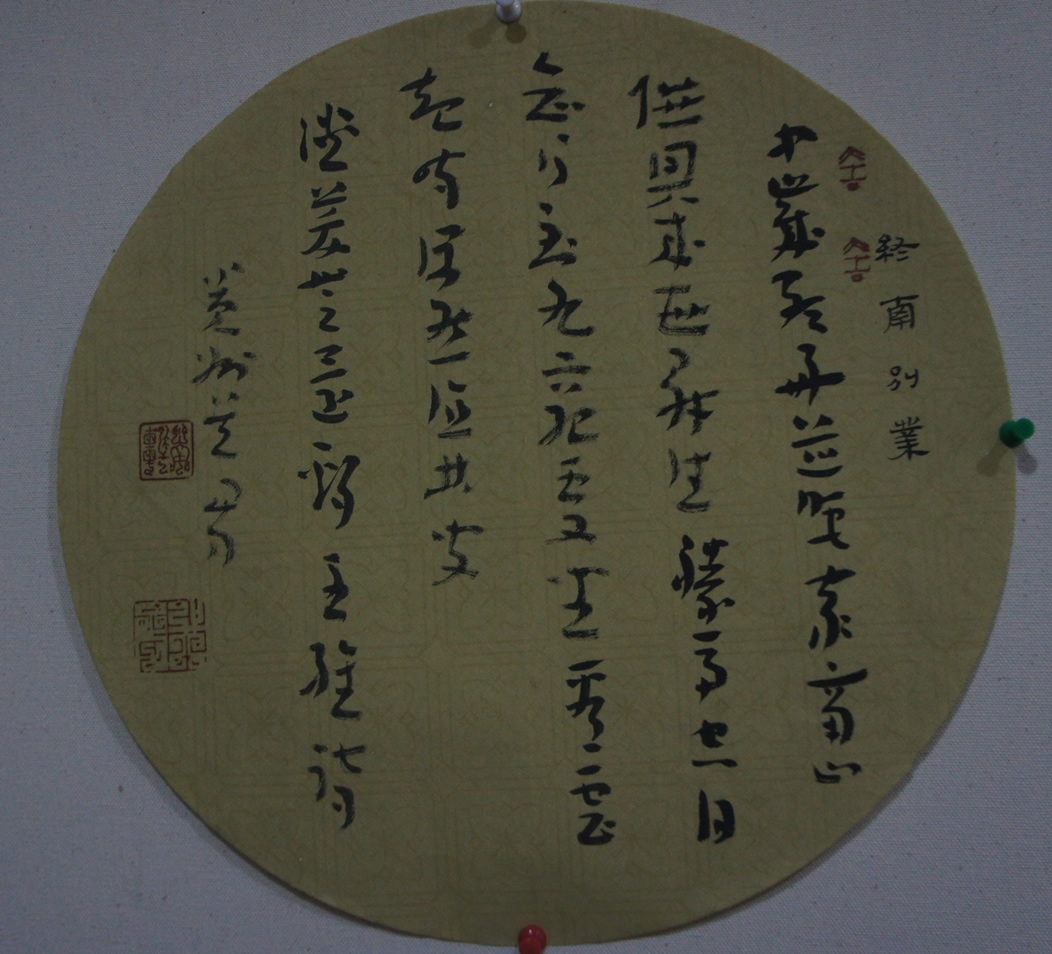 終南別業
中歲頗好道晚家南山
陲興來每獨往勝事空自
知行到水窮處坐看雲
起時偶然值林叟
談笑無還期王維詩